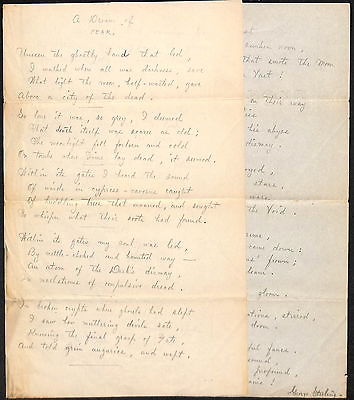 A Dream of
FEAR.
Unseen the ghostly hands that led,
I walked where all was darkness, save
What light the moon, half-wasted, gave
Above a city of the dead.
So lone it was, so grey, I deemed
That death itself was scarce so old;
The moonlight fell forlorn and cold
On tombs where Time lay dead, it seemed.
Within its gates I heard the sound
Of winds in cypress-caverns caught
Of huddling trees that moaned, and sought
To whisper what their roots had found.
Within its gates my soul was led,
By nettle-choked and haunted way —
An atom of the Dark's dismay,
In maelstroms of compulsive dread.
In broken crypts where ghouls had slept
I saw how muttering devils sate,
Running the final group of Fate,
And told grim auguries, and wept.
sunken moon,
That smote the Moon
Vast!
in their way
his abyss
dismay.
stare,
the Void.
came down:
frown;
gloom,
stirred,
doom.
fanes
sound,
profound,
name!
George Sterling.